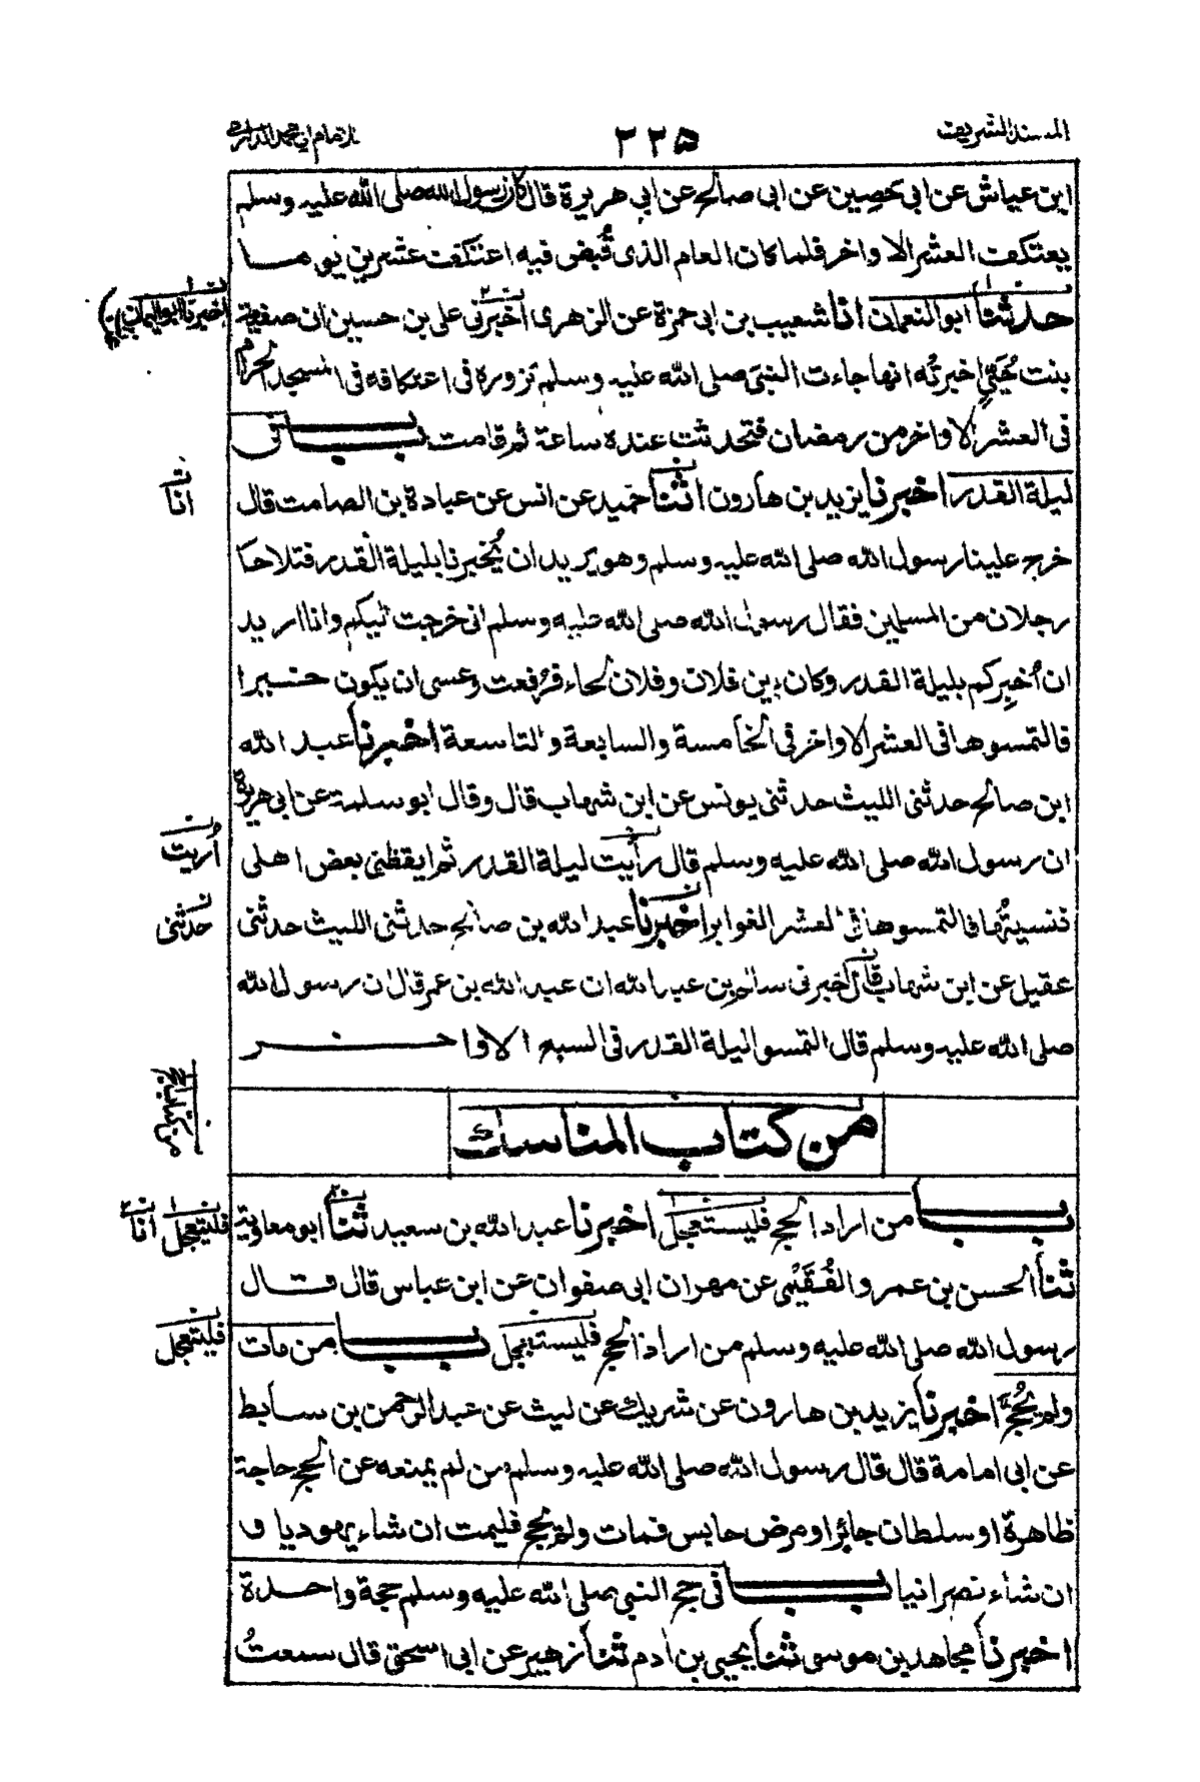 المسند الشريف
٢٢٥
للامام ابي محمد الدارمي
ابن عياش عن ابى حَصِين عن ابى صالح عن ابى هريرة قال كان رسول الله صلى الله عليه وسلم
يعتكف العشر الاواخر فلما كان العام الذى قُبض فيه اعتكف عشرين يوما
حدثنا ابو النعمان انا شعيب بن ابى حمزة عن الزهرى اخبرنى على بن حسين ان صفية
اخبرنا ابو اليمان
بنت حُيَىٍّ اخبرته انها جاءت النبى صلى الله عليه وسلم تزوره فى اعتكافه فى المسجد الحرام
فى العشر الاواخر من رمضان فتحدثت عنده ساعة ثم قامت باب فى
ليلة القدر اخبرنا يزيد بن هارون اثنا حميد عن انس عن عبادة بن الصامت قال
انا
خرج علينا رسول الله صلى الله عليه وسلم وهو يريد ان يُخبرنا بليلة القدر فتلاحا
رجلان من المسلمين فقال رسول الله صلى الله عليه وسلم انى خرجت اليكم وانا اريد
ان اُخبِركم بليلة القدر وكان بين فلان وفلان لحاء فرُفعت وعسى ان يكون خيرا
فالتمسوها فى العشر الاواخر فى الخامسة والسابعة والتاسعة اخبرنا عبد الله
ابن صالح حدثنى الليث حدثنى يونس عن ابن شهاب قال وقال ابو سلمة عن ابى هريرة
ان رسول الله صلى الله عليه وسلم قال رأيت ليلة القدر ثم ايقظنى بعض اهلى
اُريت
فنسيتُها فالتمسوها فى العشر الغوابر اخبرنا عبد الله بن صالح حدثنى الليث حدثنى
حدثنى
عقيل عن ابن شهاب قال اخبرنى سالم بن عبد الله ان عبد الله بن عمر قال ان رسول الله
صلى الله عليه وسلم قال التمسوا ليلة القدر فى السبع الاواخر
من كتاب المناسك
من كتاب الحج
باب من اراد الحج فليستعجل اخبرنا عبد الله بن سعيد ثنا ابو معاوية
فليتعجل انا
ثنا الحسن بن عمرو الفُقَيْمى عن مهران ابى صفوان عن ابن عباس قال قال
رسول الله صلى الله عليه وسلم من اراد الحج فليستعجل باب من مات
فليتعجل
ولم يحُجّ اخبرنا يزيد بن هارون عن شريك عن ليث عن عبد الرحمن بن سابط
عن ابى امامة قال قال رسول الله صلى الله عليه وسلم من لم يمنعه عن الحج حاجة
ظاهرة او سلطان جائر او مرض حابس فمات ولم يحج فليمت ان شاء يهوديا و
ان شاء نصرانيا باب فى حج النبى صلى الله عليه وسلم حجة واحدة
اخبرنا مجاهد بن موسى ثنا يحيى بن ادم ثنا زهير عن ابى اسحق قال سمعتُ